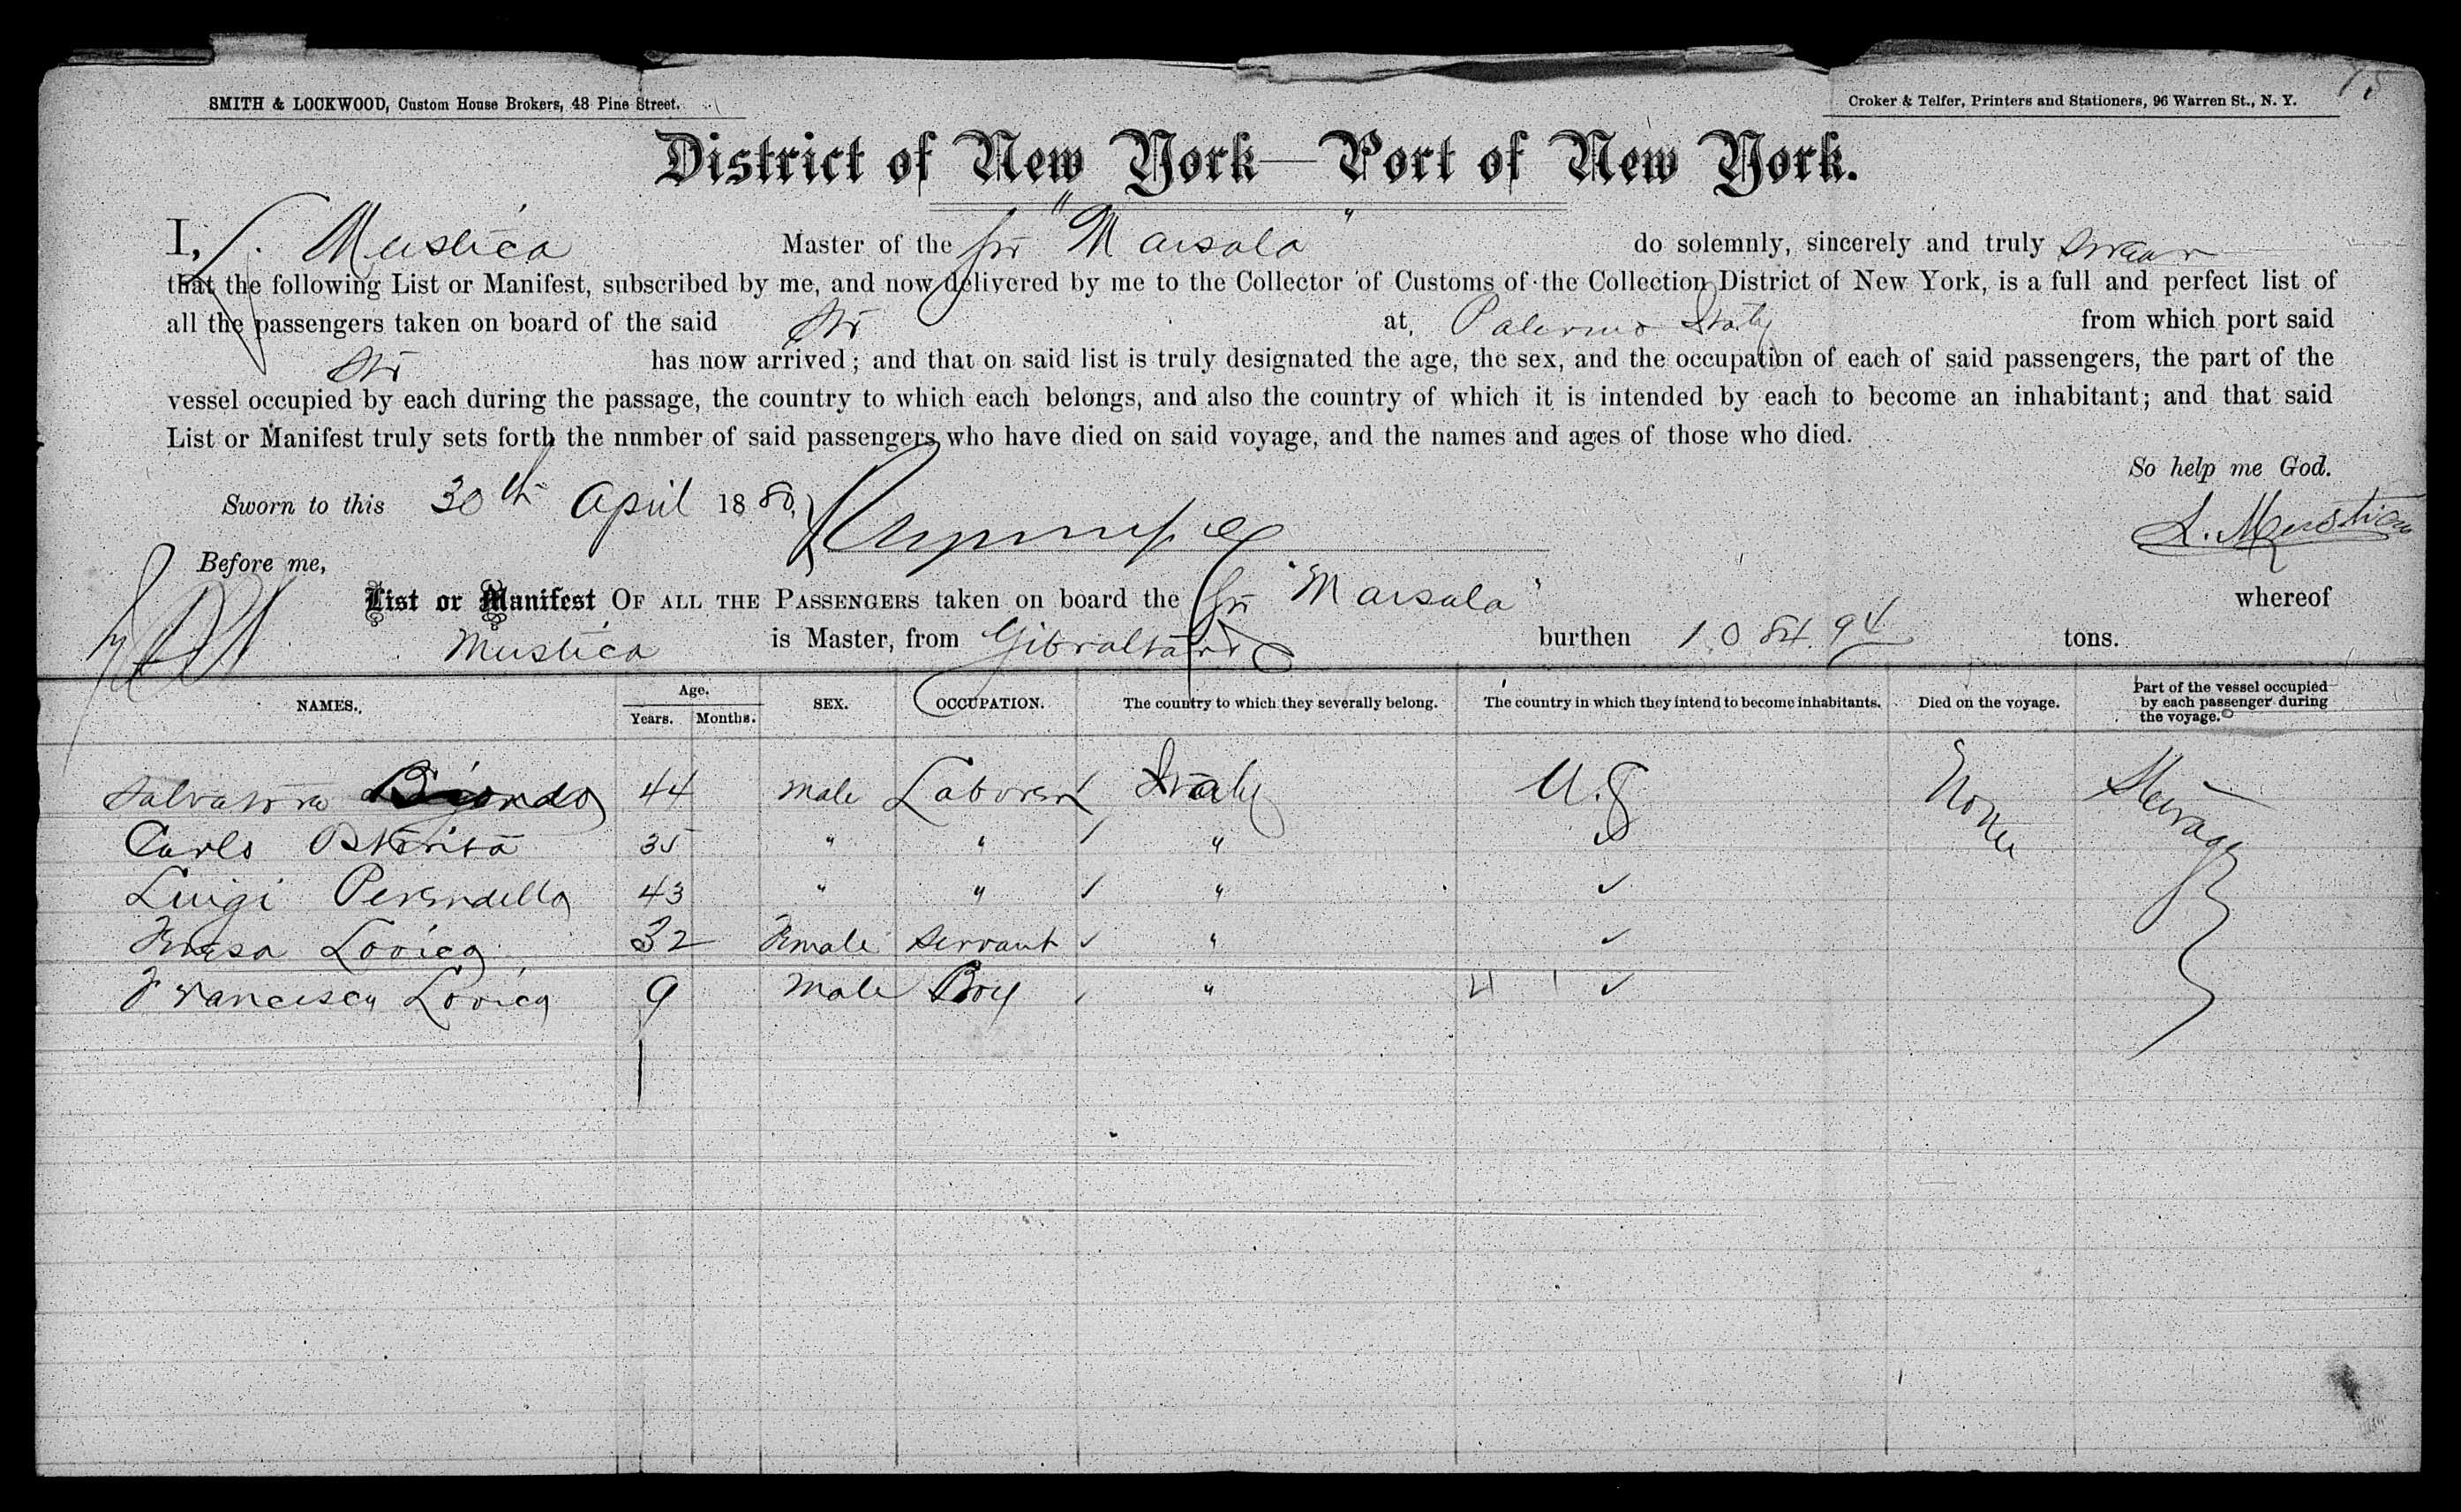 15
SMITH & LOCKWOOD, Custom House Brokers, 48 Pine Street.
Croker & Telfer, Printers and Stationers, 96 Warren St., N. Y.
District of New York—Port of New York.
I, Mustica Master of the Str "Marsala" do solemnly, sincerely and truly swear
that the following List or Manifest, subscribed by me, and now delivered by me to the Collector of Customs of the Collection District of New York, is a full and perfect list of
all the passengers taken on board of the said Str at, Palermo Italy from which port said
Str has now arrived; and that on said list is truly designated the age, the sex, and the occupation of each of said passengers, the part of the
vessel occupied by each during the passage, the country to which each belongs, and also the country of which it is intended by each to become an inhabitant; and that said
List or Manifest truly sets forth the nnmber of said passengers who have died on said voyage, and the names and ages of those who died.
So help me God.
Sworn to this 30th April 1880, L. Mustica
Before me,
List or Manifest OF ALL THE PASSENGERS taken on board the Str "Marsala" whereof
Mustica is Master, from Gibraltar burthen 1084.94 tons.
NAMES. Age. Years. Months. SEX. OCCUPATION. The country to which they severally belong. The country in which they intend to become inhabitants. Died on the voyage. Part of the vessel occupied by each passenger during the voyage.
Salvatore 44 Male Laborer Italy U.S None Steerage
Carlo 35 " " " ✓
Luigi 43 " " ✓ " ✓
Lovico 32 Female Servant ✓ " ✓
Francisco Lovico 9 Male Boy " ✓